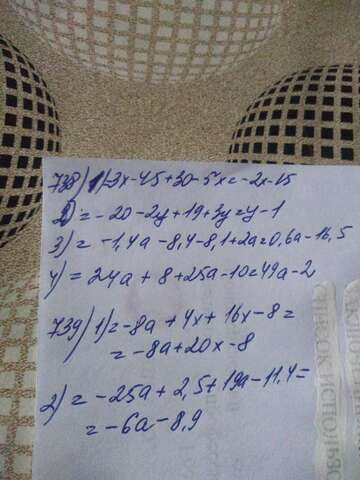 738) 1) 3x-45+30-5x=-2x-15
2) =-20-2y+19+3y=y-1
3) =-1,4a-8,4-8,1+2a=0,6a-16,5
4) =24a+8+25a-10=49a-2
739) 1) =-8a+4x+16x-8=
=-8a+20x-8
2) =-25a+2,5+19a-11,4=
=-6a-8,9